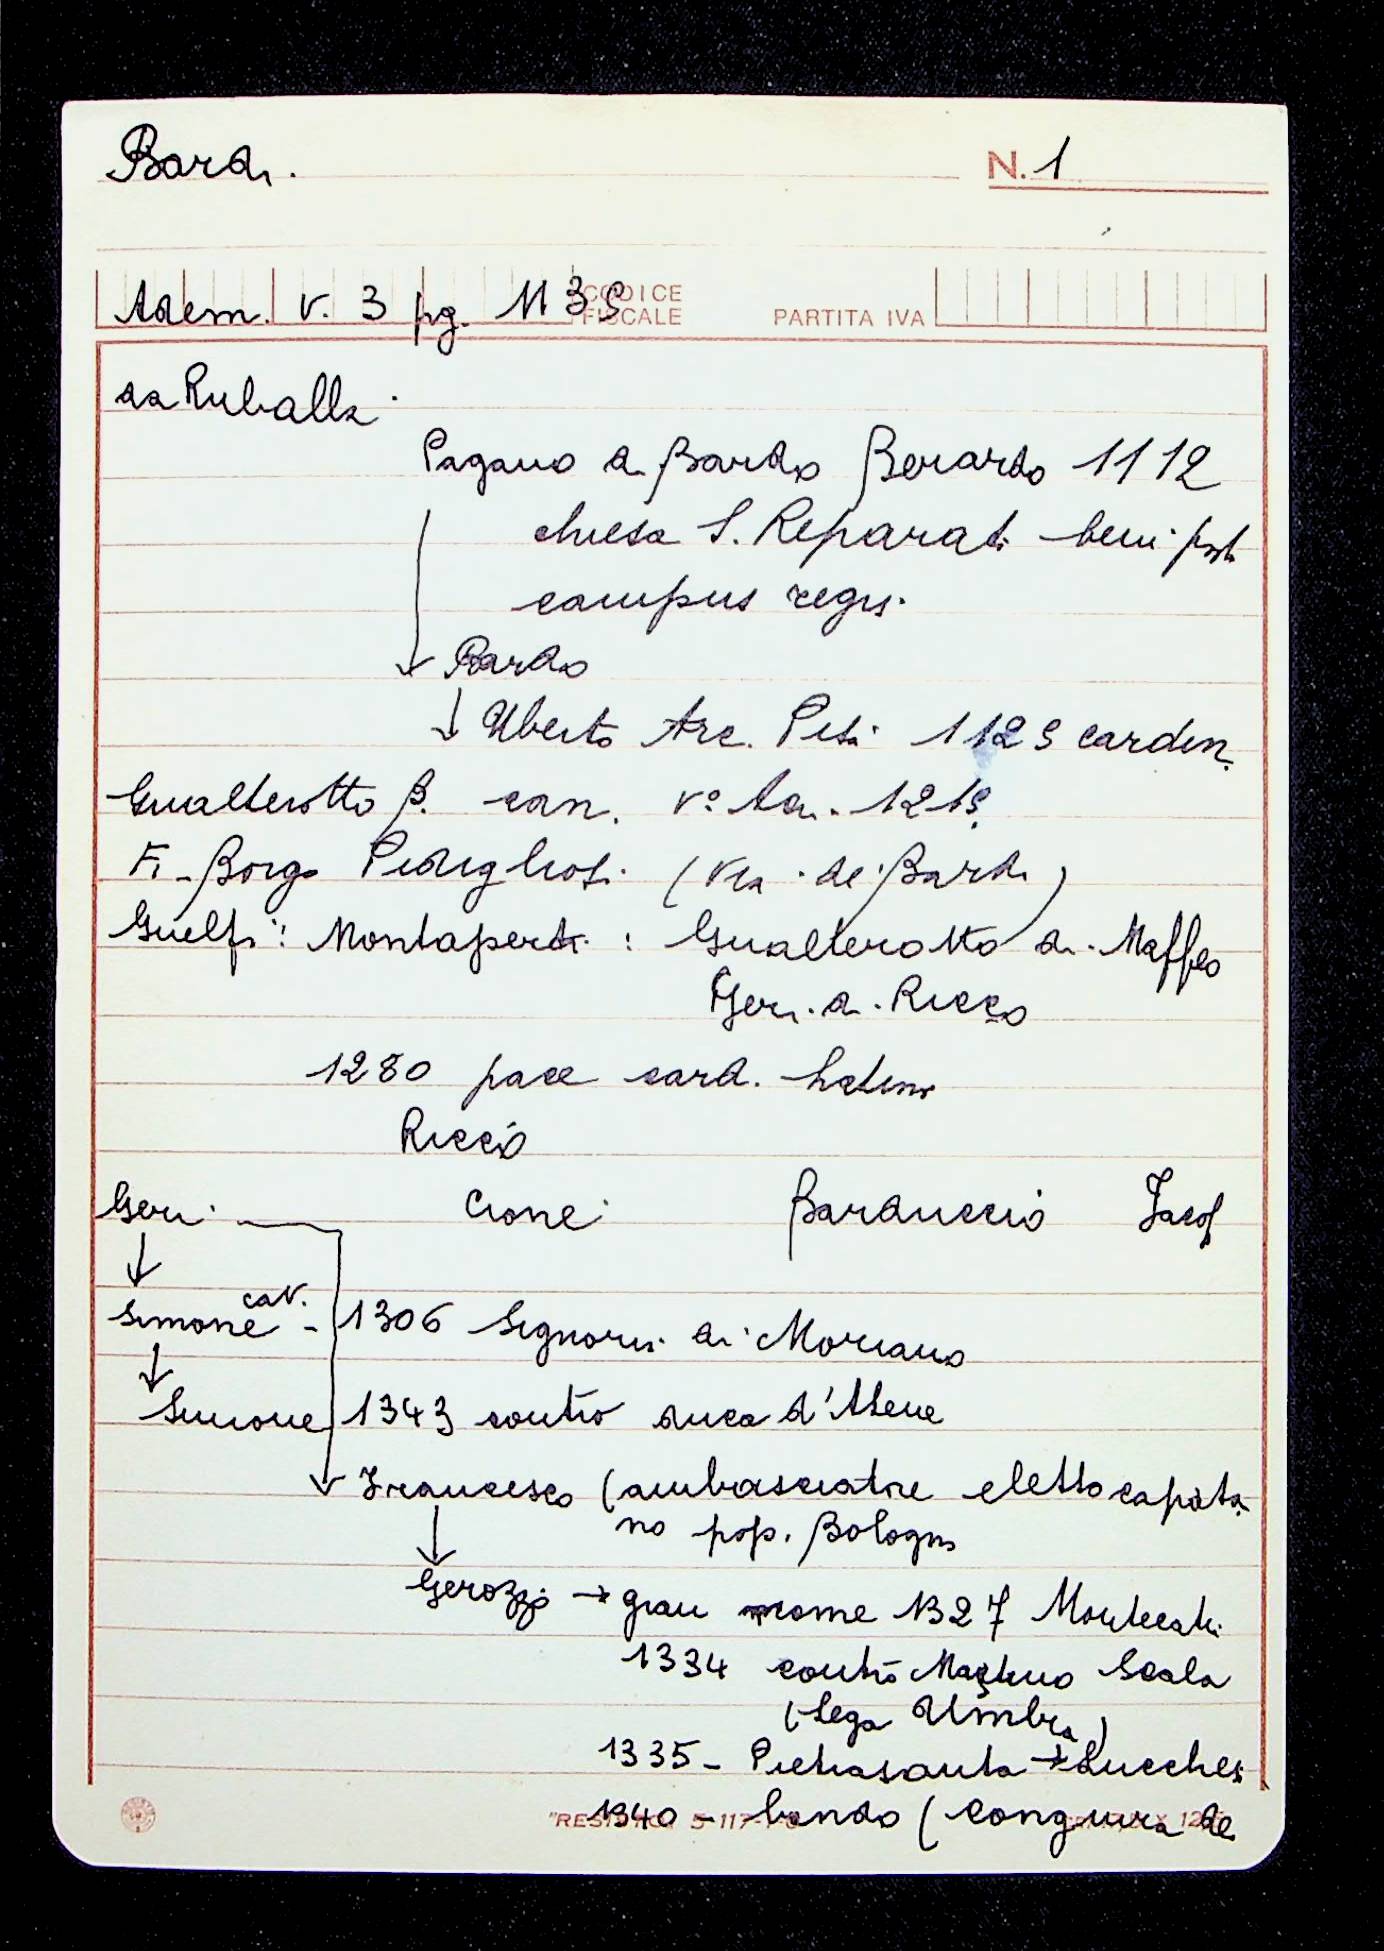 Bardi.
N. 1
Adem. v. 3 pg. 113S
CODICE FISCALE
PARTITA IVA
da Ruballa
Pagano di Bardo Berardo 1112
chiesa S. Reparata beni posti
campus regis.
Bardo
Uberto Arc. Pisa 1129 carden.
Gualterotto B. can. v° Ad. 1219.
Fi - Borgo Pidiglioso (Via de' Bardi)
Guelfi: Montaperti: Gualterotto di Maffeo
Geri di Ricco
1280 pace card. Latino
Riccio
Geri Cione Barduccio Jacop
cav.
Simone - 1306 Signoria di Moriano
Simone 1343 contro duca d'Atene
Francesco (ambasciatore eletto capita
no pop. Bologna
Gerozzo → gran nome 1327 Montecati
1334 contro Mastino Scala
(Lega Umbra)
1335 - Pietrasanta → Lucchesi
1340 - bando (congiura de